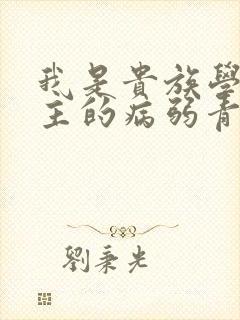 我是貴族學
主的病弱青
劉秉光